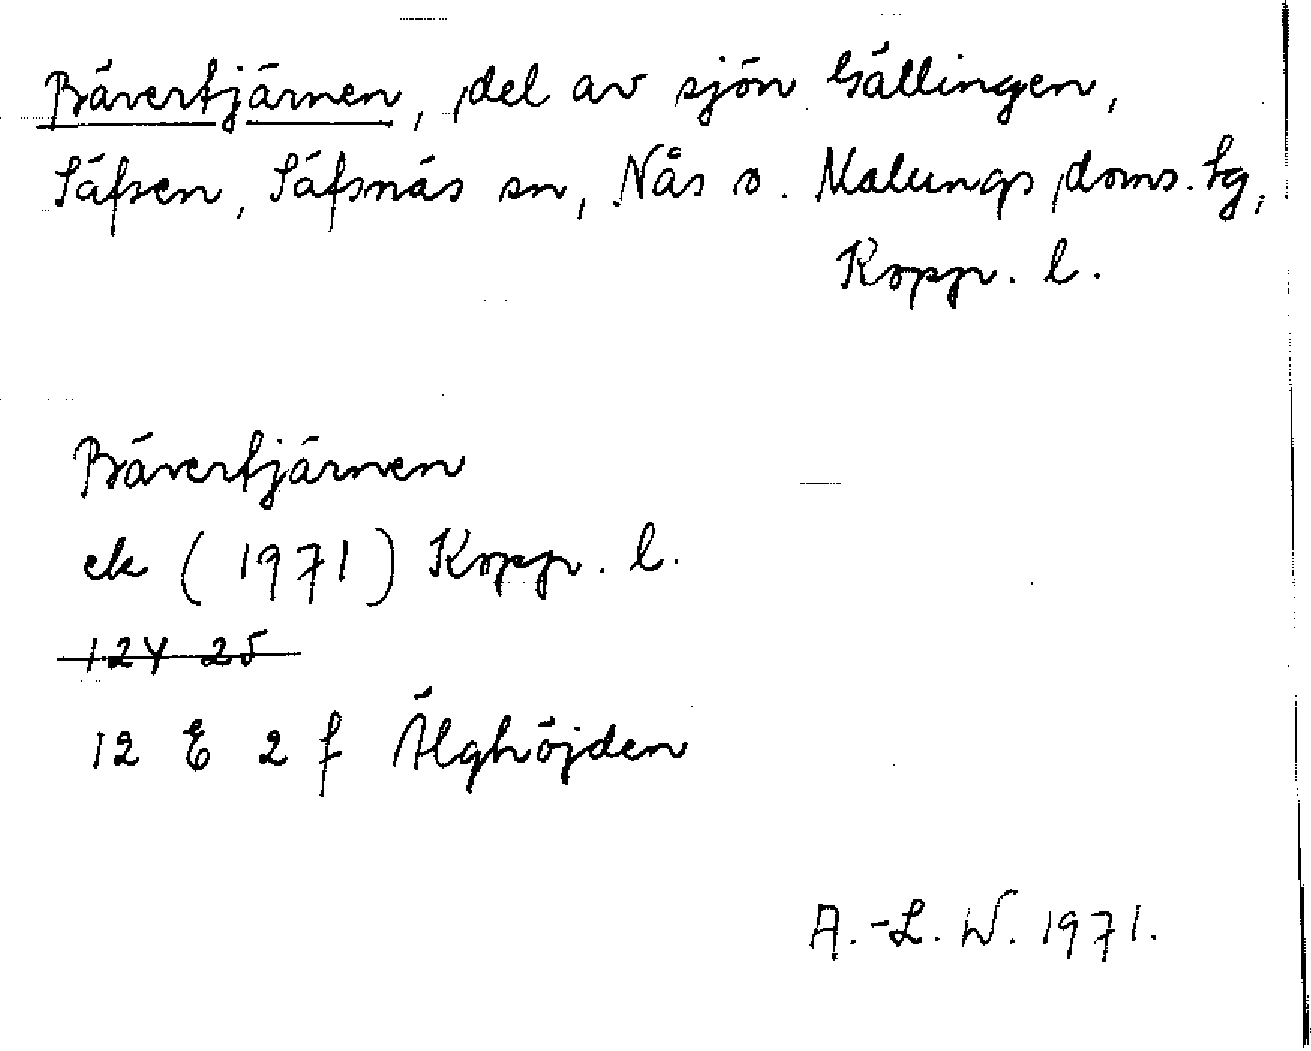 Bävertjärnen, del av sjön Gällingen,
Säfsen, Säfsnäs sn, Nås o. Malungs doms. tg,
Kopp. l.
Bävertjärnen
ek (1971) Kopp. l.
12Y 25
12 E 2 f Älghöjden
A.-L. W. 1971.